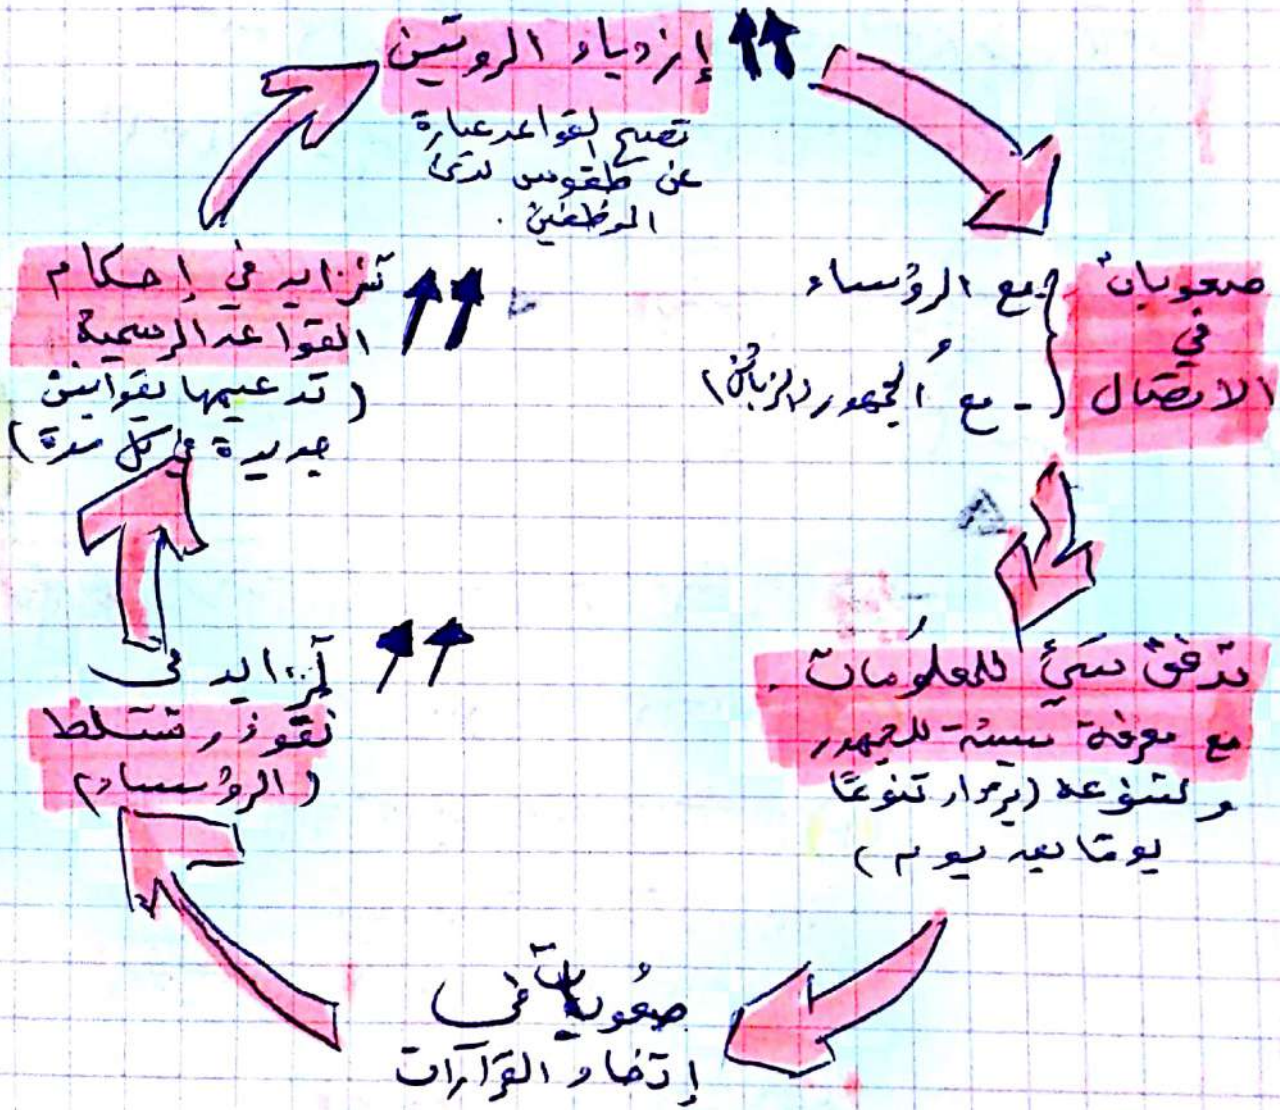 إزدياد الروتين
تصبح القواعد عبارة
عن طقوس لدى
الموظفين .
صعوبات
في
الاتصال
- مع الرؤساء
و
- مع الجمهور (الزبائن)
تدفق سيّئ للمعلومات .
مع معرفة سيئة للجمهور
ولتنوعه (يزداد تنوعًا
يومًا بعد يوم)
صعوبات في
إتخاد القرارات
تزايد في
نفوذ وتسلط
(الرؤساء)
تزايد في إحكام
القواعد الرسمية
(تدعيمها بقوانين
جديدة في كل مرة)